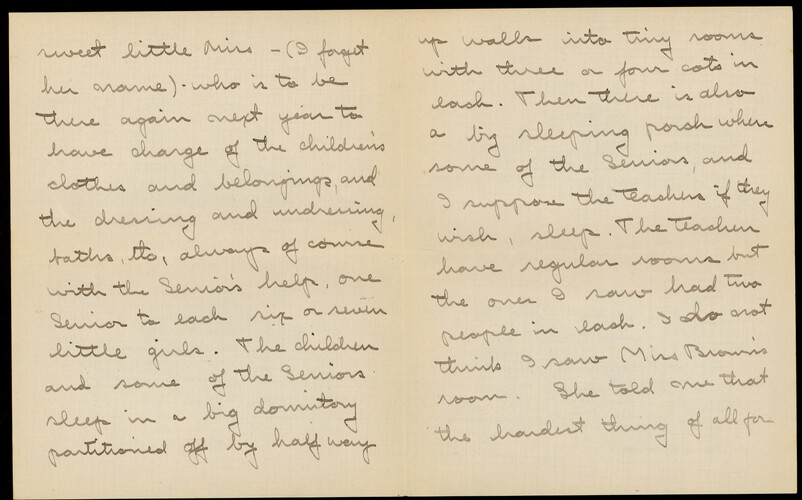 sweet little Miss - (I forget
her name) - who is to be
there again next year to
have charge of the children's
clothes and belongings, and
the dressing and undressing,
baths, etc, always of course
with the Senior's help, one
Senior to each six or seven
little girls. The children
and some of the Seniors
sleep in a big dormitory
partitioned off by half way
up walls into tiny rooms
with three or four cots in
each. Then there is also
a big sleeping porch where
some of the Seniors, and
I suppose the teachers if they
wish, sleep. The teachers
have regular rooms but
the ones I saw had two
people in each. I do not
think I saw Miss Brown's
room. She told me that
the hardest thing of all for